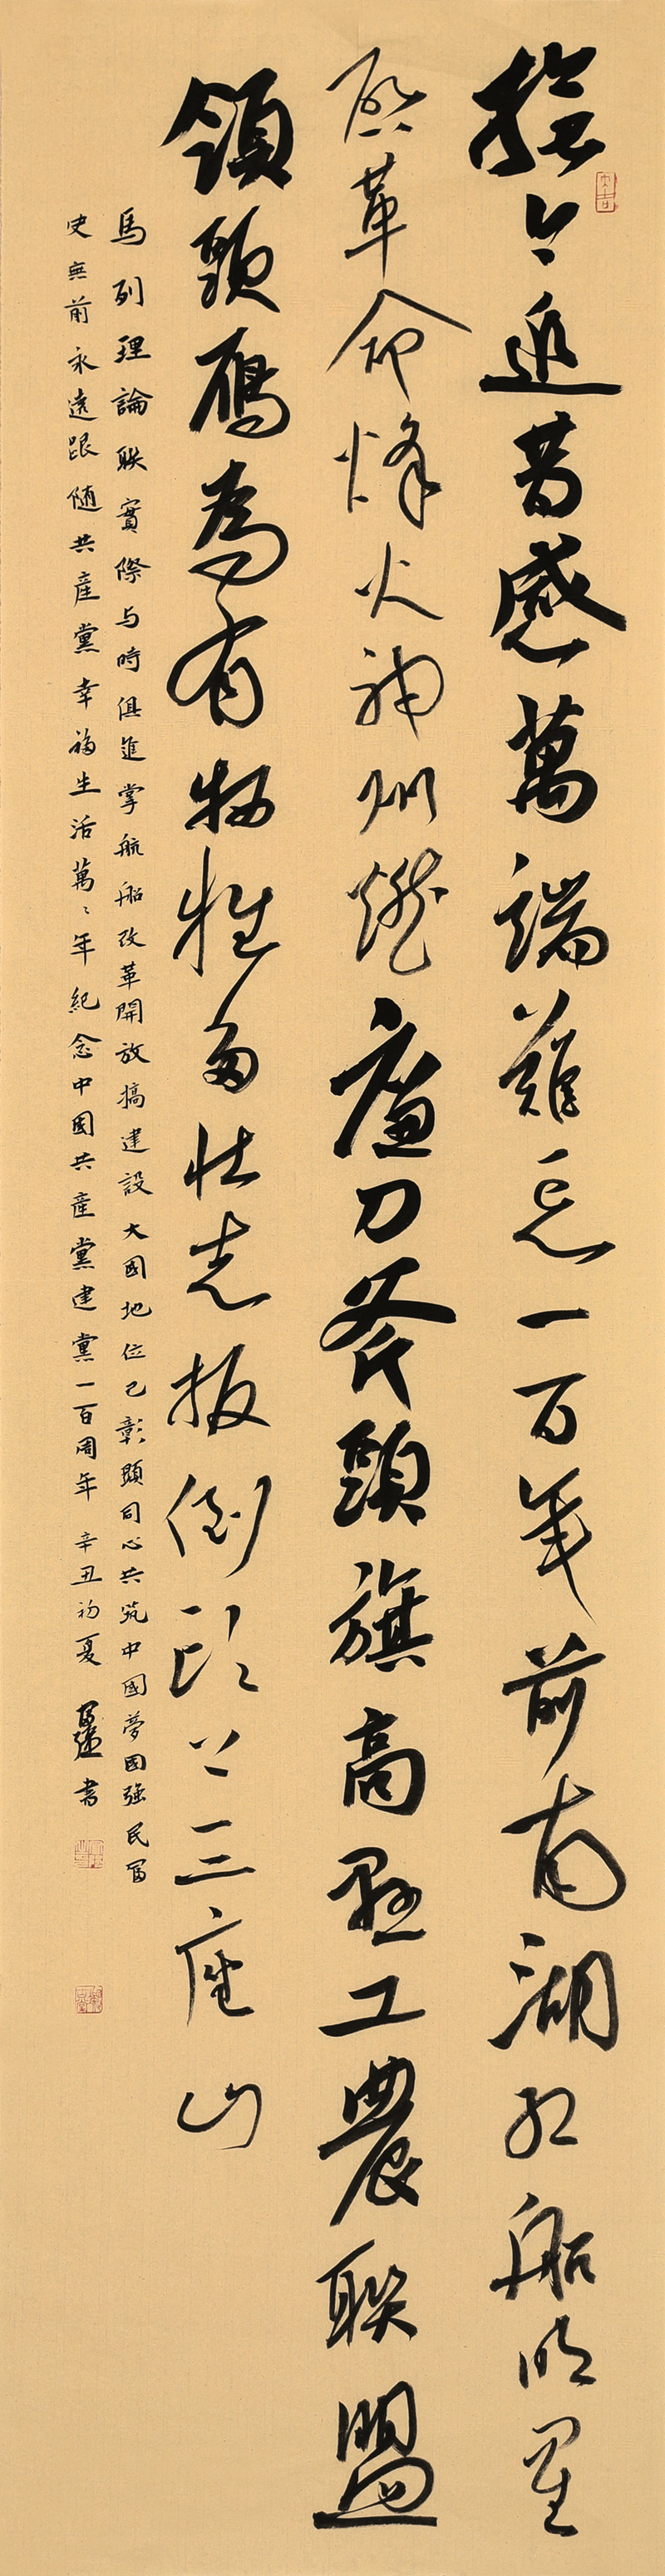 撫今追昔感萬端難忘一百年前南湖紅船明星
啟革命烽火神州燃鐮刀斧頭旗高懸工農聯盟
領頭雁為有犧牲多壯志扳倒頭上三座山
馬列理論聯實際与時俱進掌航船改革開放搞建設大國地位已彰顯同心共筑中國夢國強民富
史無前永遠跟随共產黨幸福生活萬萬年紀念中國共產黨建黨一百周年 辛丑初夏 書